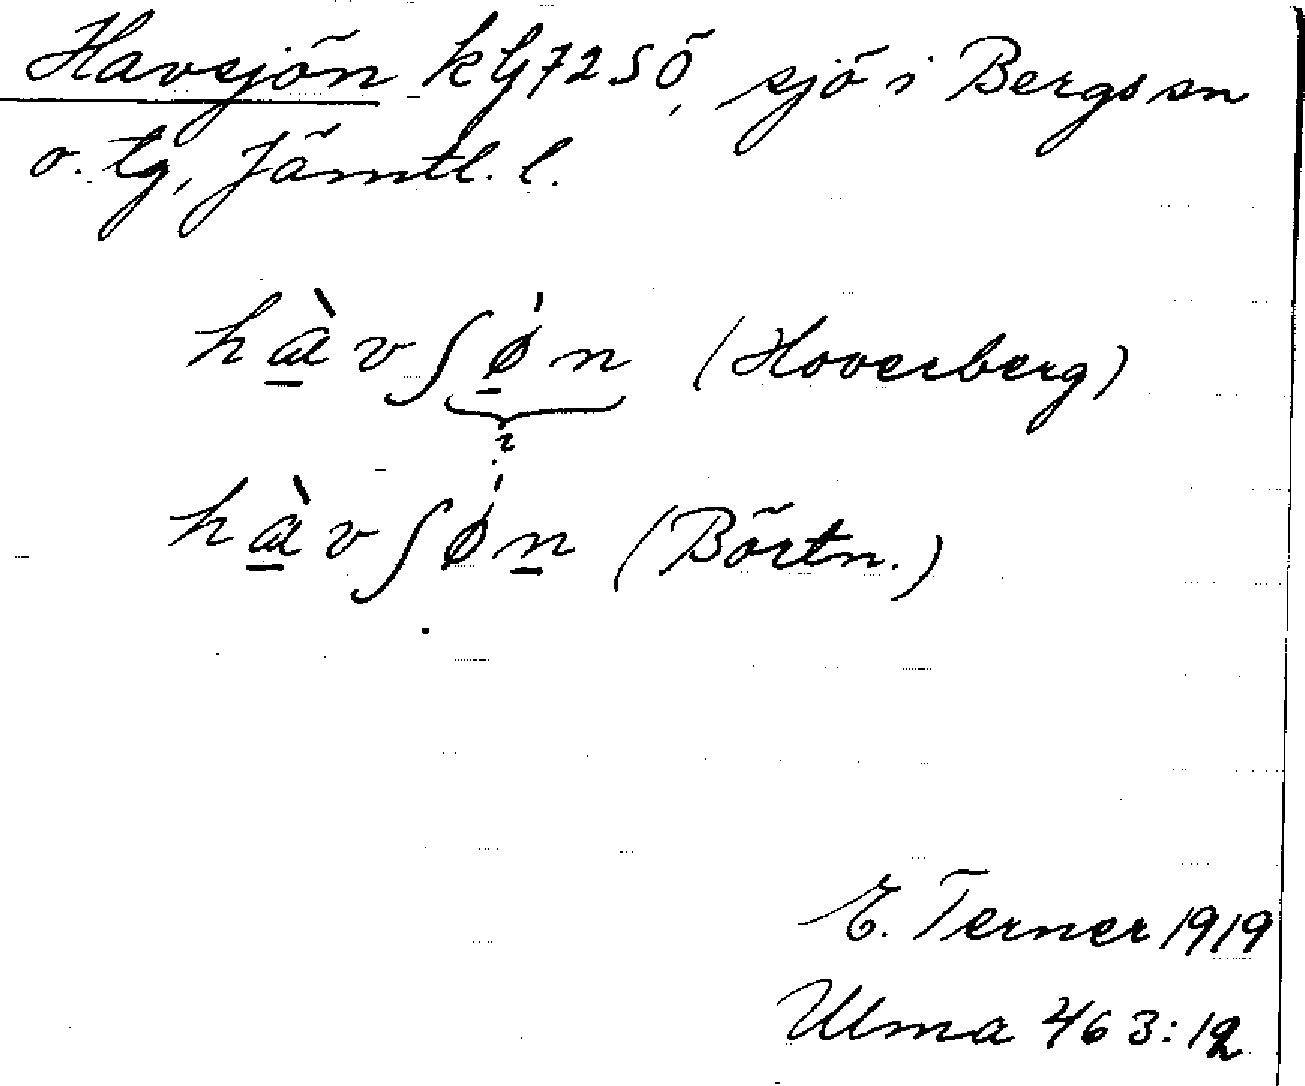 Havsjön kg 72 SÖ, sjö i Bergs sn
o. tg, Jämtl. l.
hàvʃǿn (Hoverberg)
hàvʃǿn (Börtn.)
E. Terner 1919
Ulma 463:12